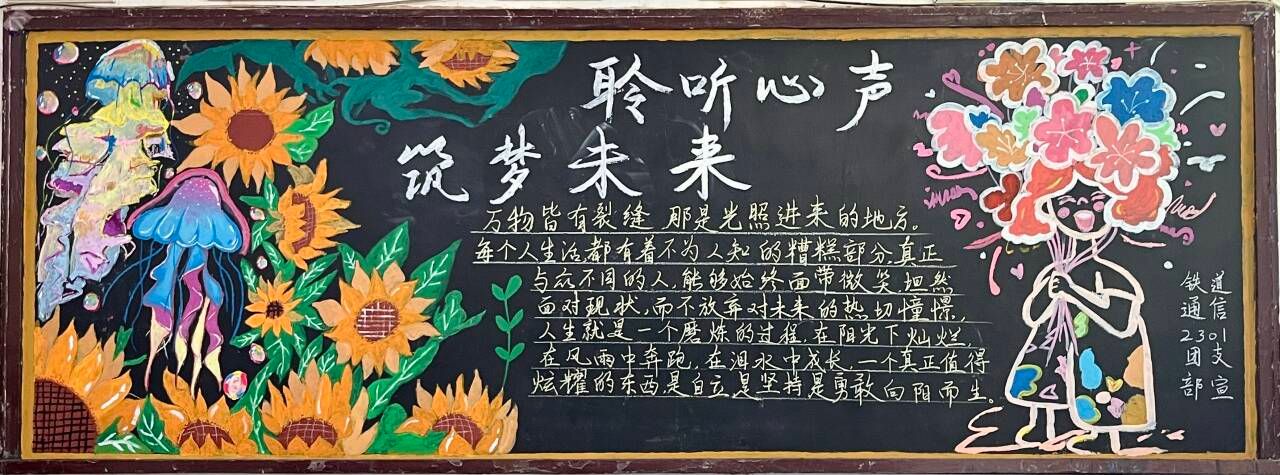 聆听心声
筑梦未来
万物皆有裂缝 那是光照进来的地方。
每个人生活都有着不为人知的糟糕部分,真正
与众不同的人,能够始终面带微笑 坦然
面对现状,而不放弃对未来的热切憧憬,
人生就是一个磨炼的过程,在阳光下灿烂,
在风雨中奔跑,在泪水中成长,一个真正值得
炫耀的东西是自立是坚持是勇敢向阳而生。
铁道
通信
2301
团支
部宣